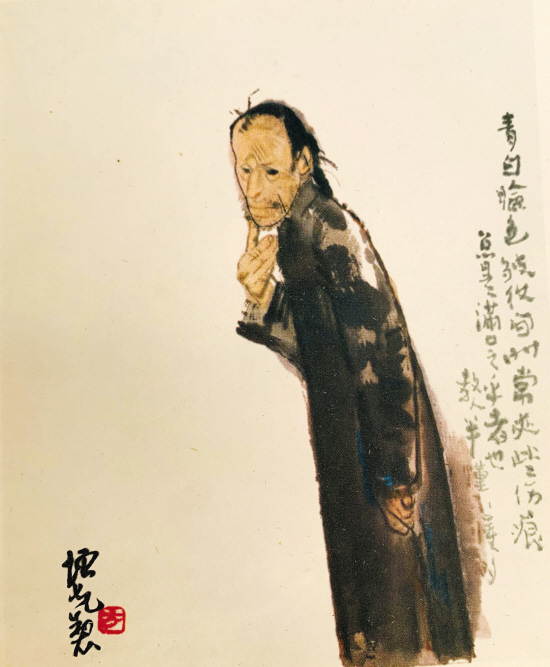 青白臉色皱纹间时常夾些伤痕
总是满口之乎者也
教人半懂不懂的
增先製
方